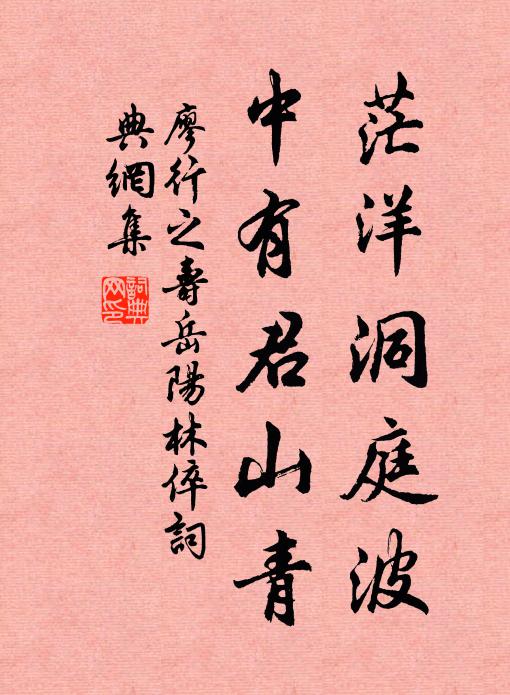 茫洋洞庭波
中有君山青
廖行之壽岳陽林倅詞
典網集
詞典網印